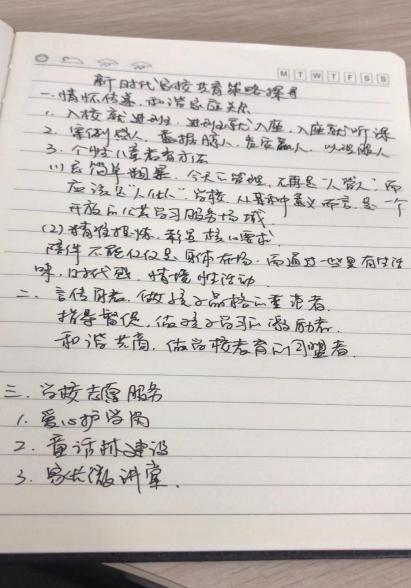 M T W T F S S
新时代家校共育策略探寻
一、情怀传递，和谐家庭关系
1、入校就进班，进班就入座，入座就听课
2、案例感人，数据服人，发言赢人，以理服人
3、个性儿童教育方法
(1)云简单, 今天云管理, 不再是"人管人", 而
应该是"人化人", 学校, 从某种意义而言, 是一个
开放的公共学习服务场域.
(2)精准提炼, 彰显核心要求
陪伴不能仅仅是身体在场, 而通过一些更有生活
味, 时代感, 情境性活动
二、言传身教, 做孩子品格的重造者.
指导督促, 做孩子学习的激励者.
和谐共商, 做学校教育的同盟者.
三、学校志愿服务
1、爱心护学岗
2、童话林建设
3、家长微讲堂.